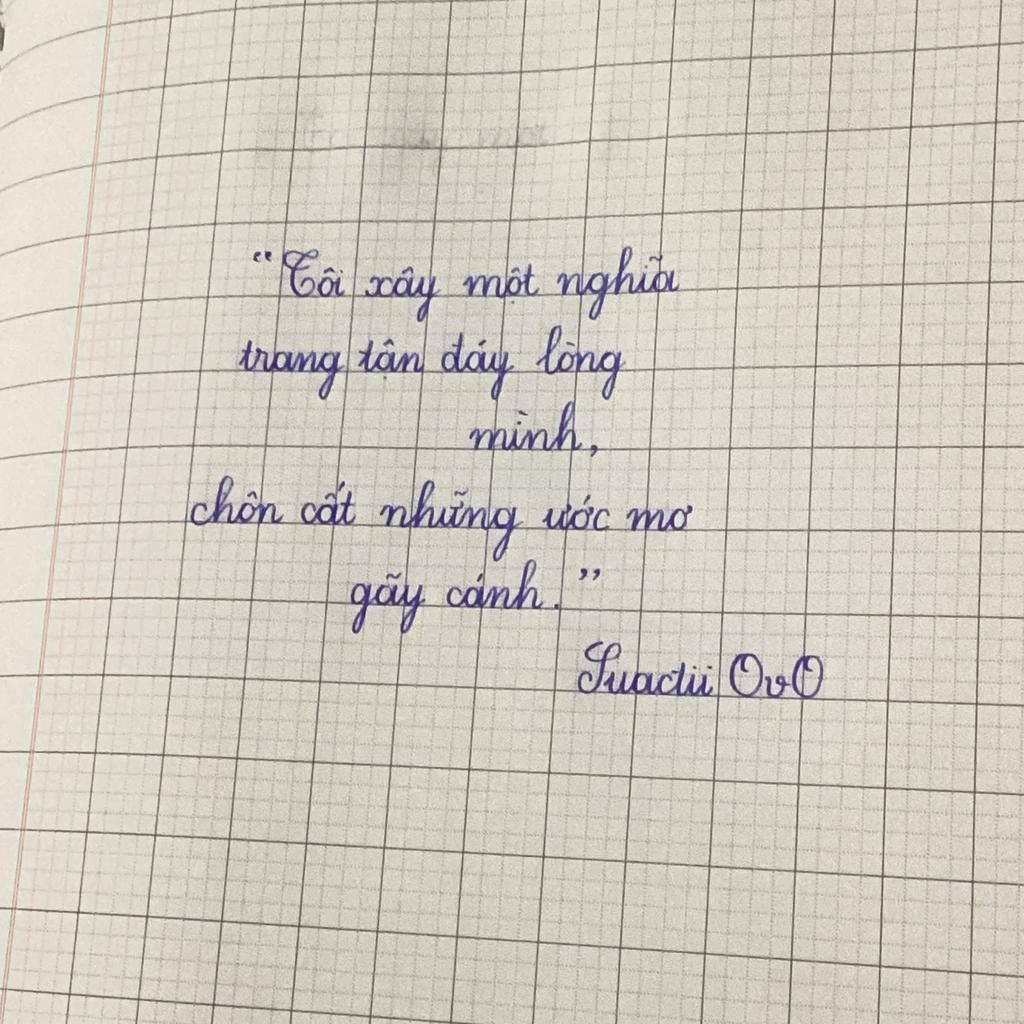 “Tôi xây một nghĩa
trang tận đáy lòng
mình,
chôn cất những ước mơ
gãy cánh.”
Suactii OvO